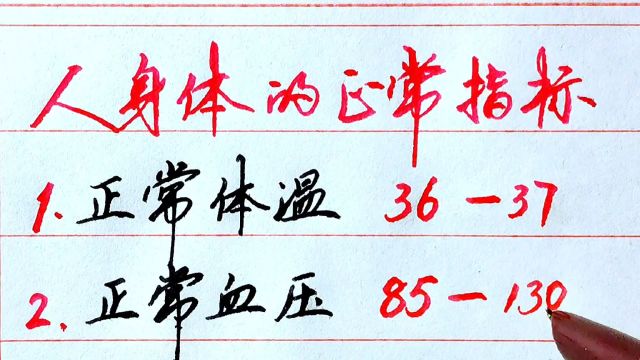 人身体的正常指标
1.正常体温 36-37
2.正常血压 85-130